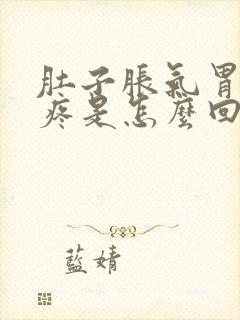 肚子脹氣胃
疼是怎麼回
藍婧